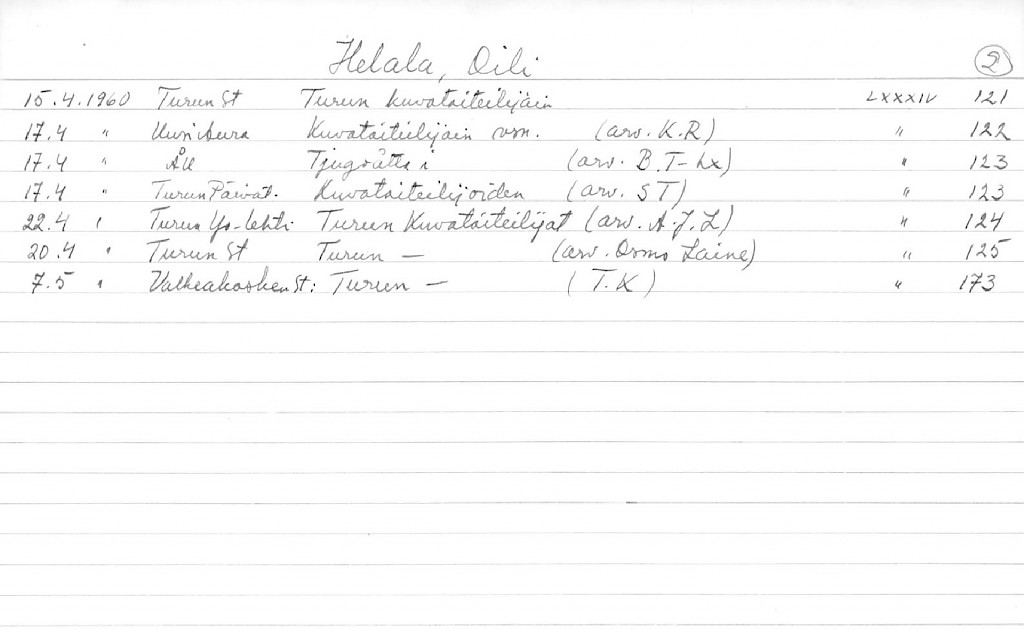 Helala, Oili 2
15.4.1960 Turun St Turun kuvataiteilijain LXXXIV 121
17.4 " Uusi Aura Kuvataiteilijain vsn. (arv. K.R) " 122
17.4 " ÅU Tjugoåtta i (arv. B.T-Lx) " 123
17.4 " Turun Päivät. Kuvataiteilijoiden (arv. ST) " 123
22.4 " Turun Yo-lehti Turun Kuvataiteilijat (arv. A.J.L) " 124
20.4 " Turun St Turun — (arv. Osmo Laine) " 125
7.5 " Valkeakosken St: Turun — (T.K) " 173